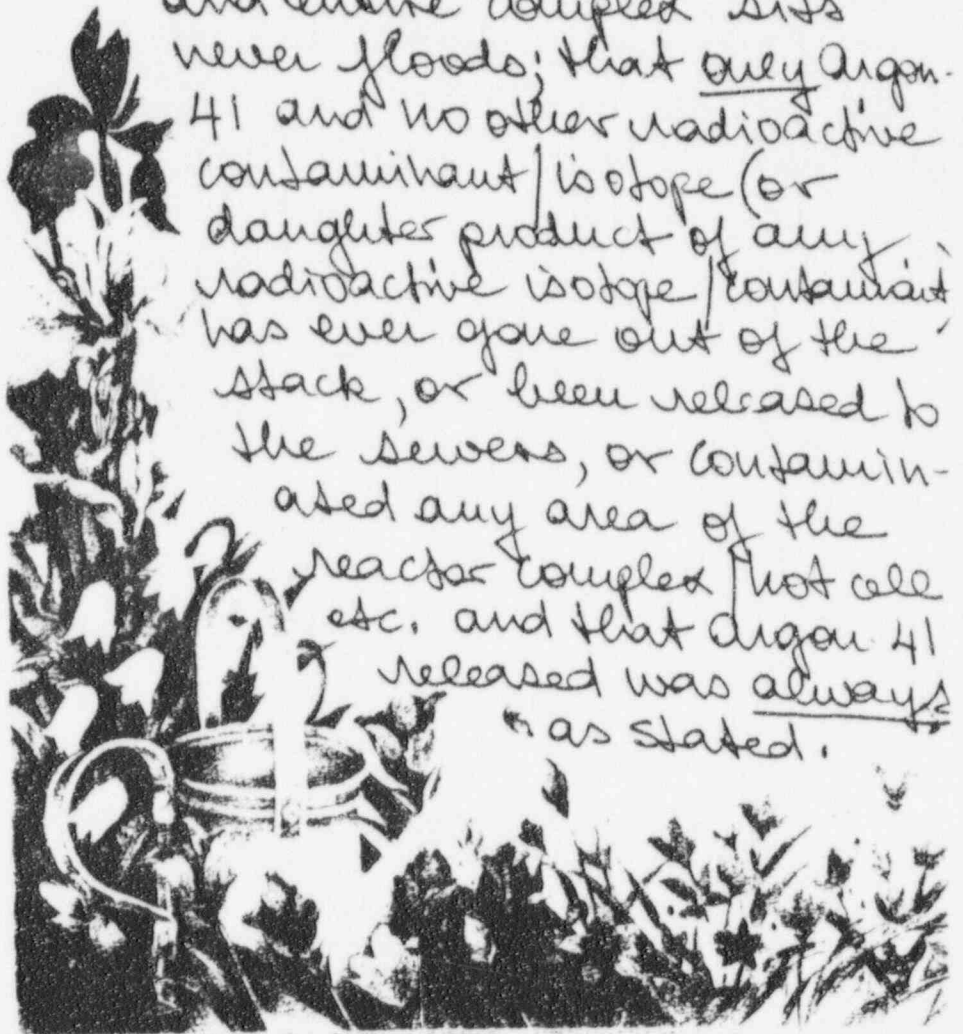 and entire complex sits
never floods; that only Argon-
41 and no other radioactive
contaminant/isotope (or
daughter product of any
radioactive isotope/contaminant
has ever gone out of the
stack, or been released to
the sewers, or contamin-
ated any area of the
reactor complex/hot cell
etc. and that Argon 41
released was always
as stated.